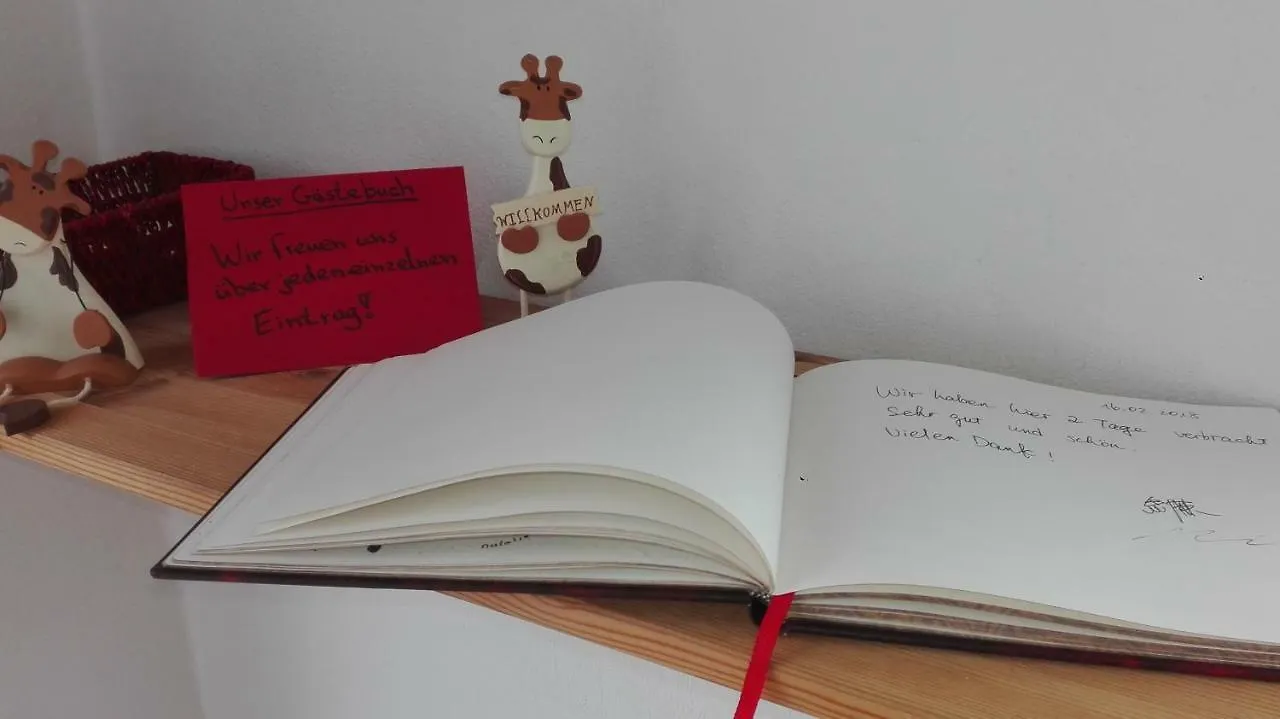 Unser Gästebuch
Wir freuen uns
über jeden einzelnen
Eintrag!
WILLKOMMEN
16.02.2018
Wir haben hier 2 Tage verbracht
Sehr gut und schön.
Vielen Dank!